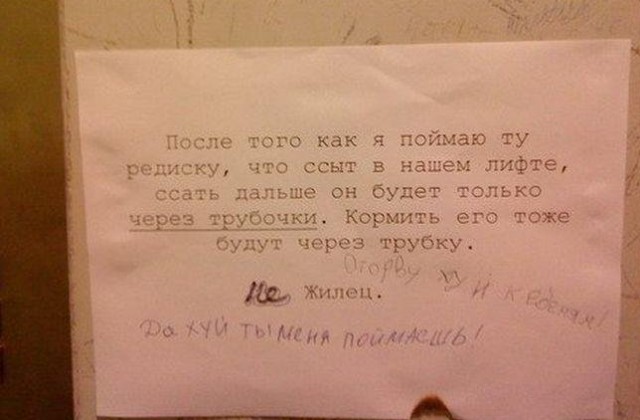 После того как я поймаю ту
редиску, что ссыт в нашем лифте,
ссать дальше он будет только
через трубочки. Кормить его тоже
будут через трубку.
Оторву хуй к ебеням!
Не Жилец.
Да хуй ты меня поймаешь!